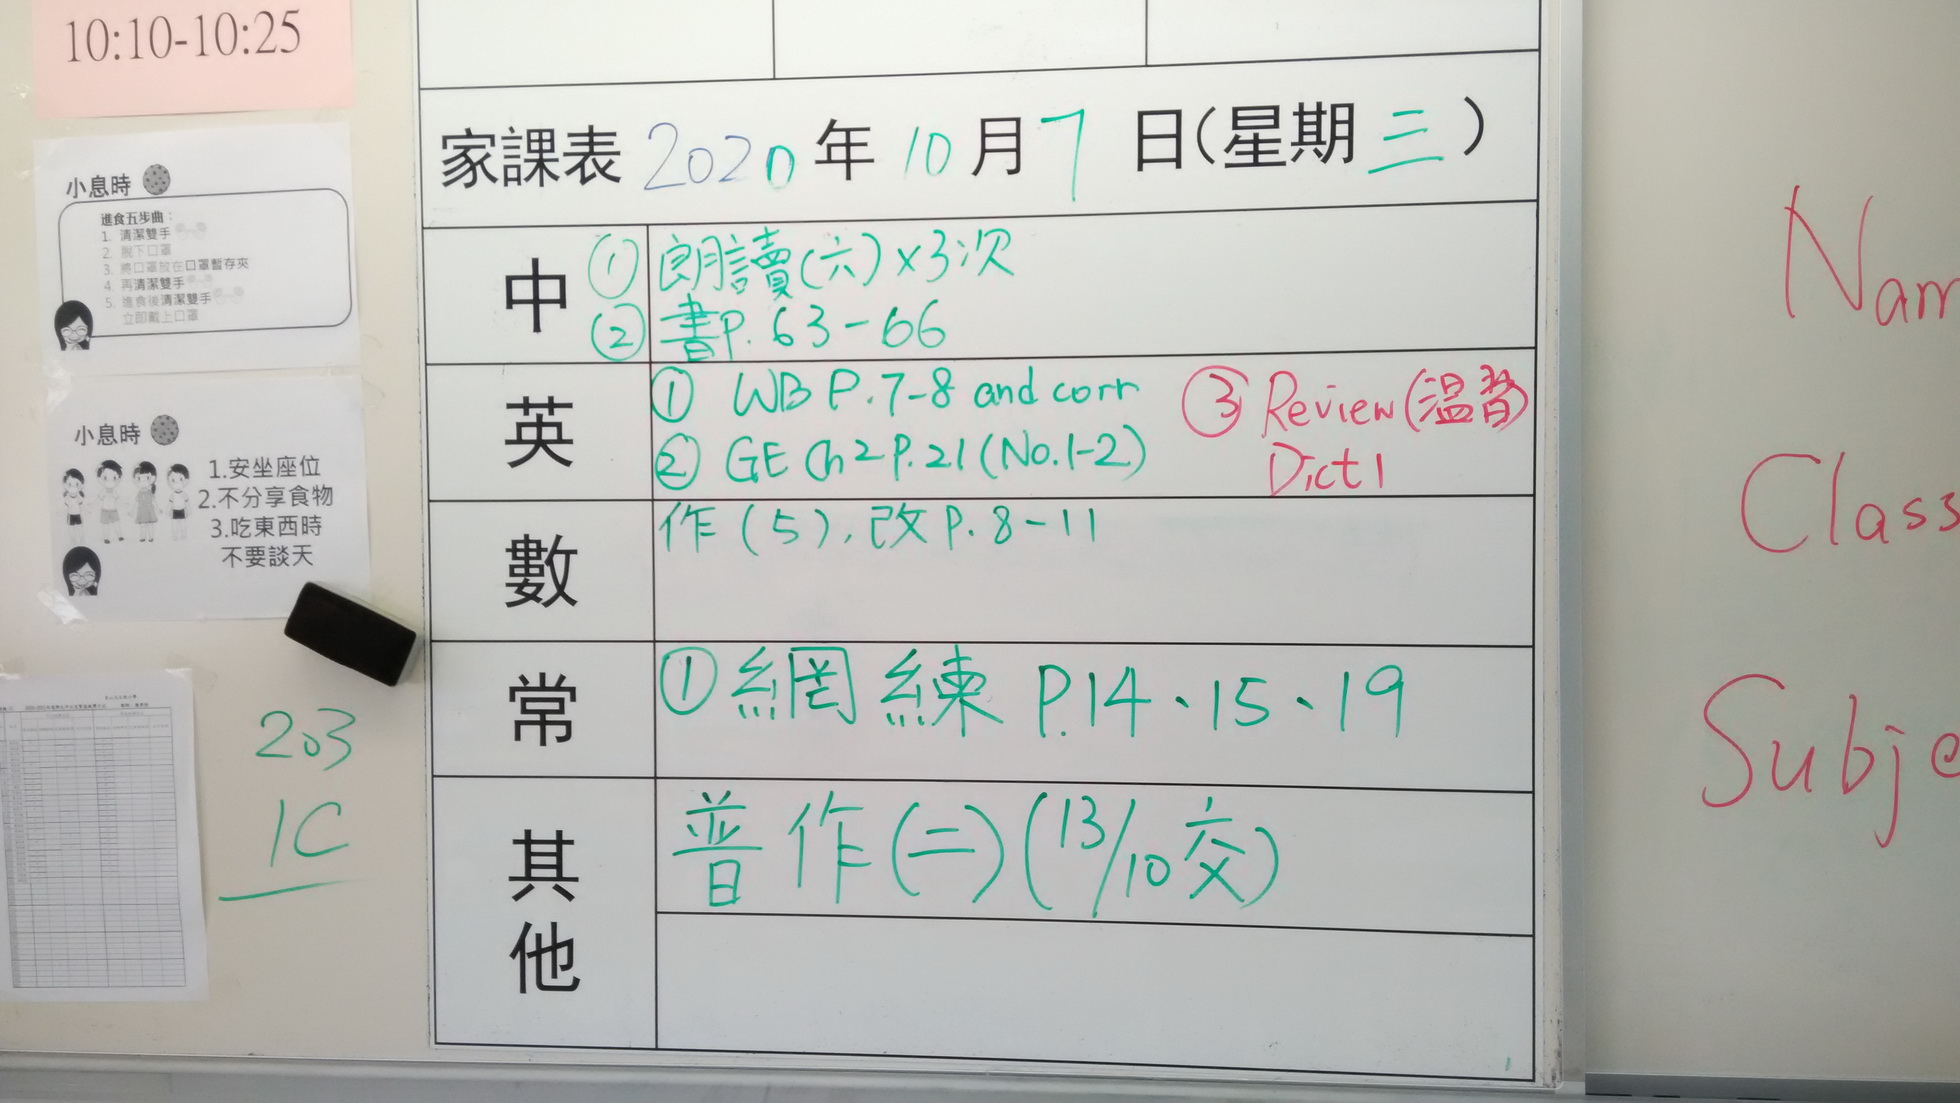 10:10-10:25
小息時
進食五步曲：
1. 清潔雙手
2. 脫下口罩
3. 將口罩放在口罩暫存夾
4. 再清潔雙手
5. 進食後清潔雙手
立即戴上口罩
小息時
1.安坐座位
2.不分享食物
3.吃東西時
不要談天
203
1C
家課表 2020 年 10 月 7 日(星期三)
中 ① 朗讀(六)×3次
② 書P.63-66
英 ① WB P.7-8 and corr ③ Review(溫習)
② GE Ch2 P.21 (No.1-2) Dict 1
數 作(5), 改P.8-11
常 ① 網練 P.14、15、19
其他 普作(二)(13/10交)
Nam
Class
Subje